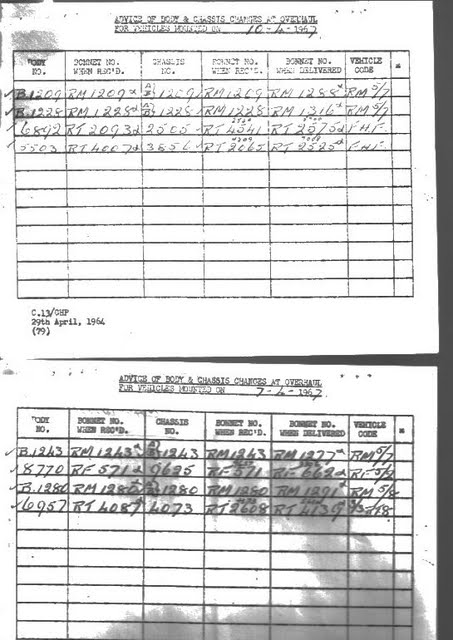 ADVICE OF BODY & CHASSIS CHANGES AT OVERHAUL
FOR VEHICLES MOUNTED ON 10-4-1967
BODY NO. BONNET NO. WHEN REC'D. CHASSIS NO. BONNET NO. WHEN REC'D. BONNET NO. WHEN DELIVERED VEHICLE CODE *
B.1209 RM 1209 RM 1288 RM 5/7
B.1228 RM 1228 1228 RM 1228 RM 1316 RM 5/7
6892 RT 2093 2505 RT 4541 RT 2575
5503 RT 4007 3856 RT 2065 RT 2525
C.13/CHP
29th April, 1964
(79)
ADVICE OF BODY & CHASSIS CHANGES AT OVERHAUL
FOR VEHICLES MOUNTED ON 7-4-1967
BODY NO. BONNET NO. WHEN REC'D. CHASSIS NO. BONNET NO. WHEN REC'D. BONNET NO. WHEN DELIVERED VEHICLE CODE *
B.1243 RM 1243 1243 RM 1243 RM 1277 RM 5/7
8770 RF 571 9625 RF 571 RF 662 RF 5/2
B.1280 RM 1280 1280 RM 1280 RM 1291 RM 5/8
6957 RT 4087 4073 RT 2608 RT 4139